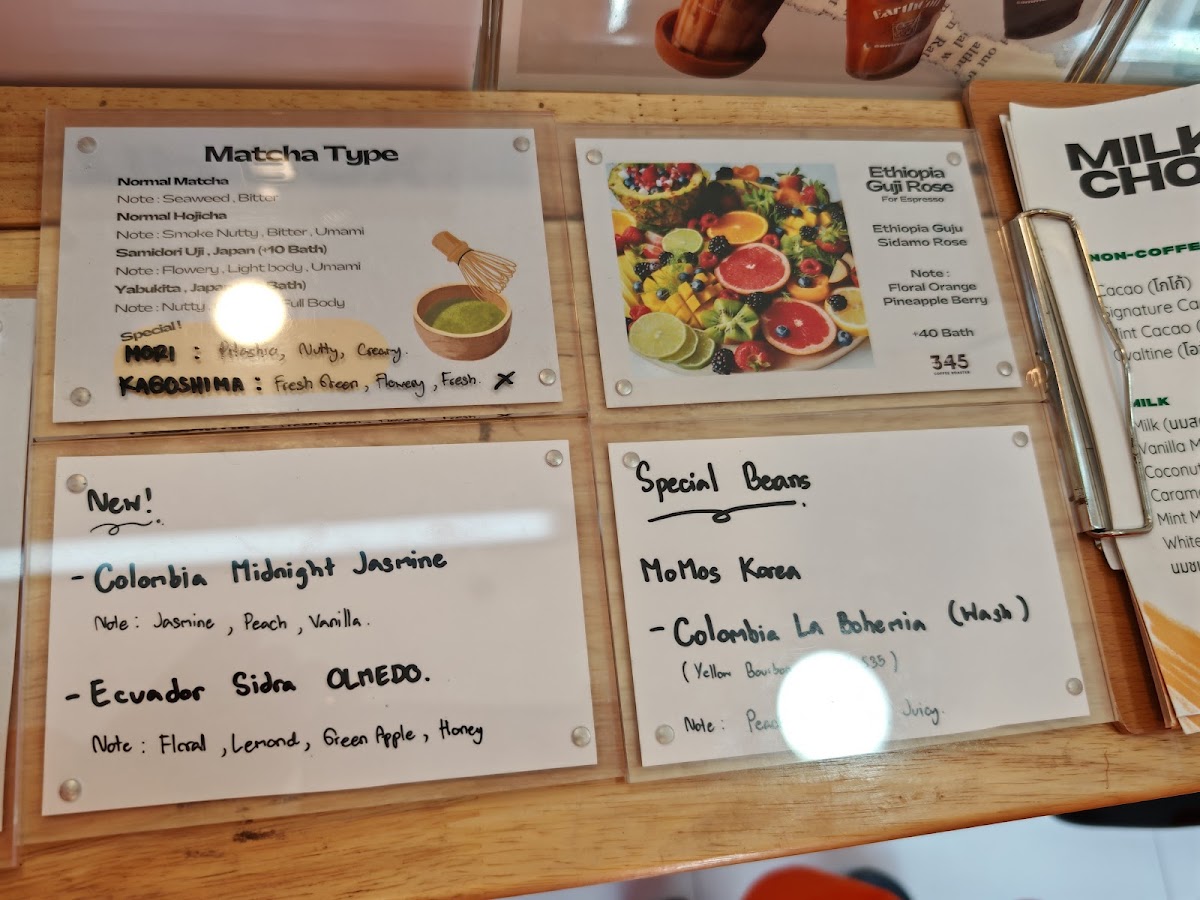 Matcha Type
Normal Matcha
Note : Seaweed , Bitter
Normal Hojicha
Note : Smoke Nutty , Bitter , Umami
Samidori Uji , Japan (+10 Bath)
Note : Flowery , Light body , Umami
Yabukita , Bath)
Note : Nutty Full Body
Special!
MORI : Pitashio, Nutty, Creamy.
KAGOSHIMA : Fresh Green , Flowery , Fresh. X
Ethiopia
Guji Rose
For Espresso
Ethiopia Guju
Sidamo Rose
Note :
Floral Orange
Pineapple Berry
+40 Bath
345
COFFEE ROASTER
New!
- Colombia Midnight Jasmine
Note : Jasmine , Peach , Vanilla.
- Ecuador Sidra OLMEDO.
Note : Floral , Lemond , Green Apple , Honey
Special Beans
MoMos Korea
- Colombia La Bohemia (Wash)
(Yellow
Note : Juicy.
MILK
CHO
NON-COFFE
Cacao (โกโก้)
Signature Ca
Mint Cacao
Ovaltine
MILK
Milk
Vanilla M
Coconut
Caram
Mint M
White